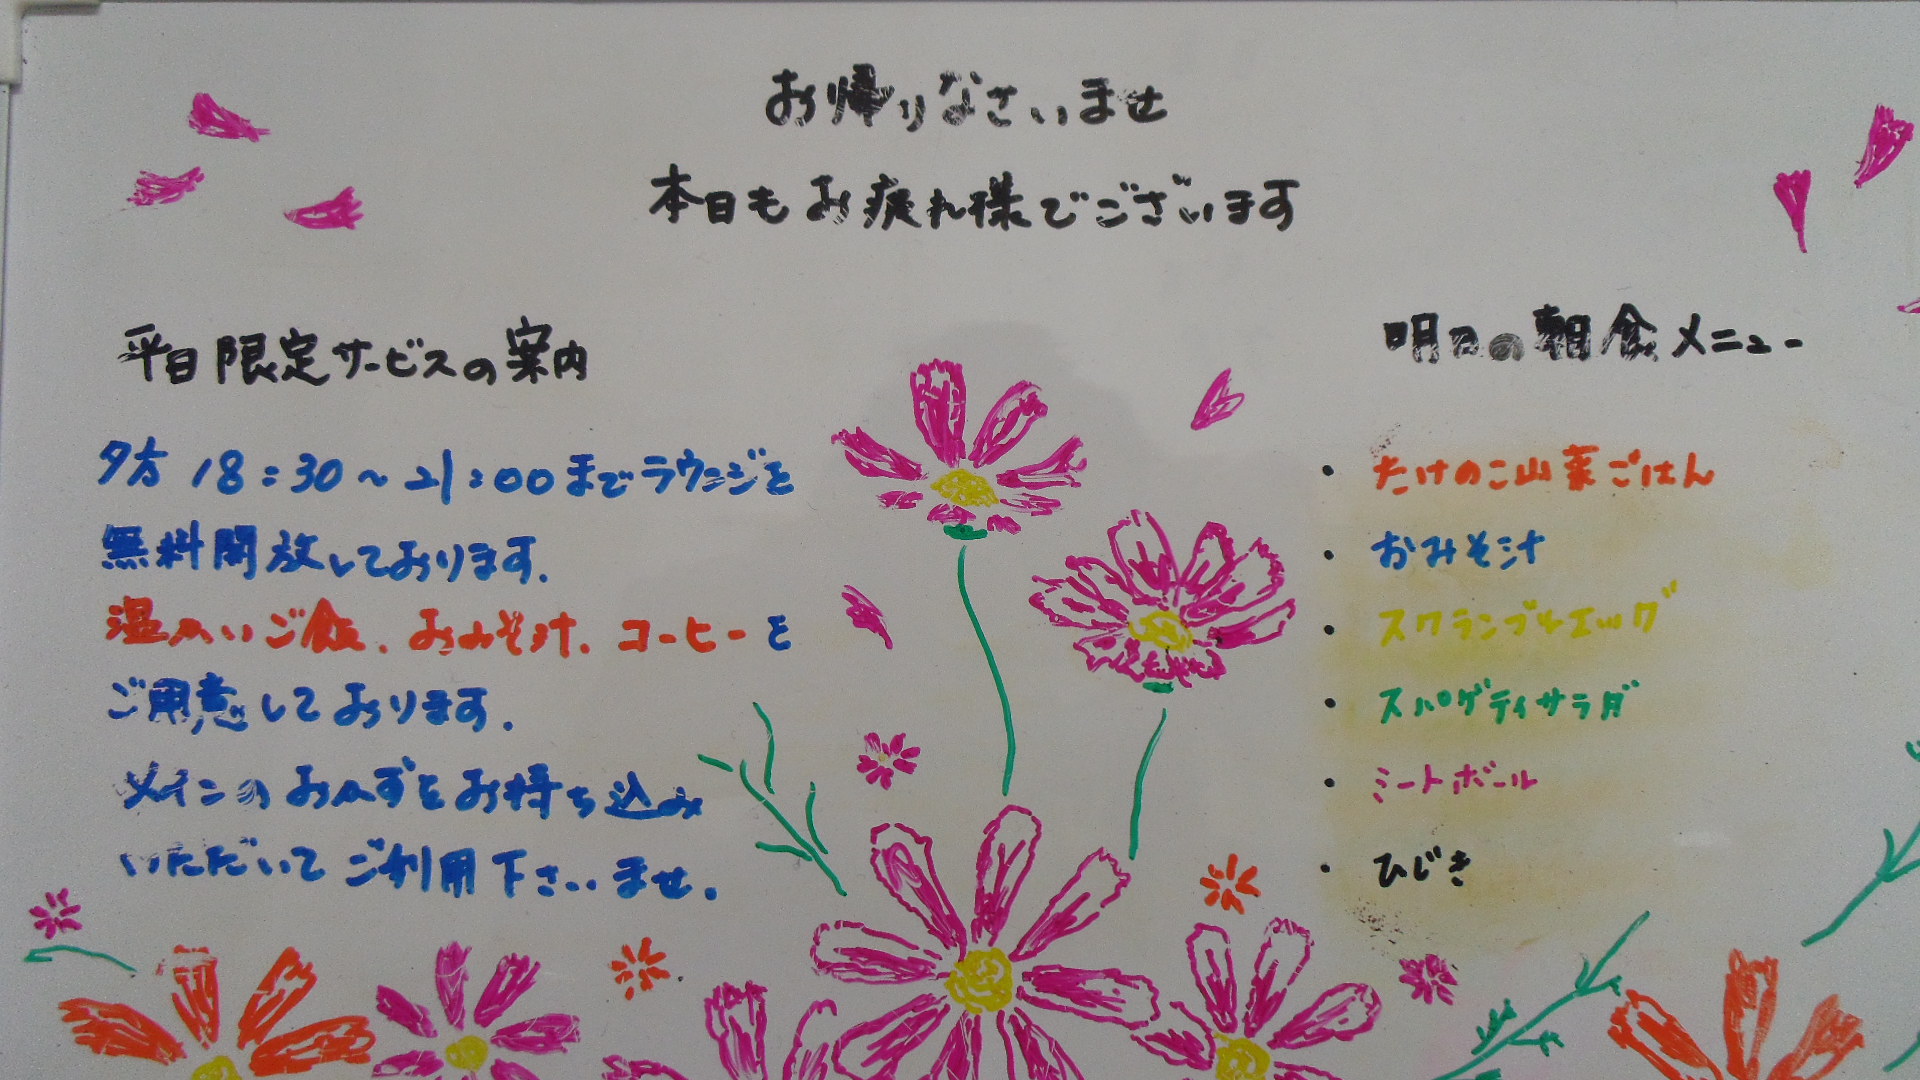 お帰りなさいませ
本日もお疲れ様でございます
平日限定サービスの案内
夕方 18:30～21:00までラウンジを
無料開放しております.
温かいご飯.おみそ汁.コーヒーを
ご用意しております.
メインのおかずをお持ち込み
いただいてご利用下さいませ.
明日の朝食メニュー
・たけのこ山菜ごはん
・おみそ汁
・スクランブルエッグ
・スパゲティサラダ
・ミートボール
・ひじき